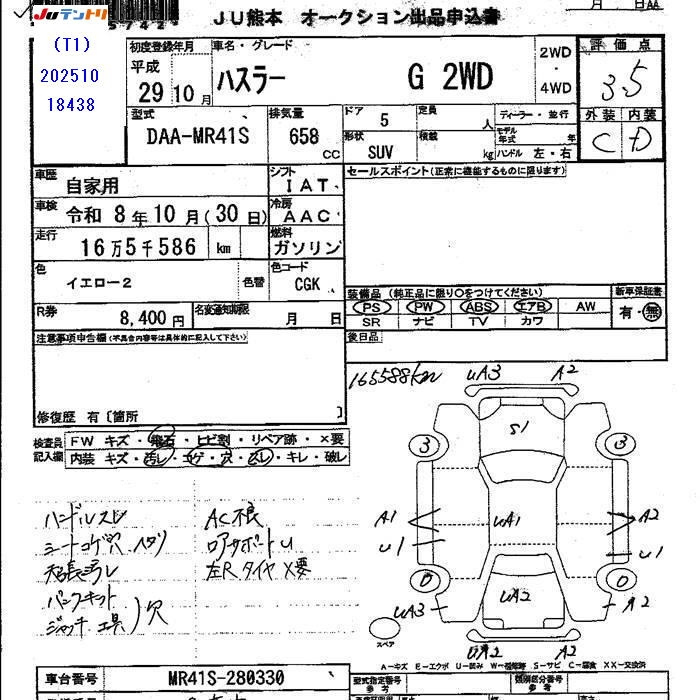 JUテントリ
JU熊本 オークション出品申込書
月 日AA
(T1)
202510
18438
初度登録年月
平成
29 10 月
車名・グレード
ハスラー G 2WD
2WD
・
4WD
評価点
3.5
外装 内装
C D
型式
DAA-MR41S
排気量
658 CC
ドア 5
定員 人
ディーラー・並行
形状 SUV
積載 kg
モデル年式 年
ハンドル 左・右
車歴 自家用
シフト IAT
セールスポイント(正常に機能するものに限ります)
車検 令和 8年 10月 (30日)
冷房 AAC
走行 16万5千586 km
燃料 ガソリン
色 イエロー2 色替
色コード CGK
装備品 (純正品に限り○をつけてください)
新車保証書
PS PW ABS エアB AW
有・無
SR ナビ TV カワ
R券 8,400円
名変通知期限 月 日
後日品
注意事項申告欄(不具合内容等は具体的に記入して下さい)
修復歴 有〔箇所 〕
検査員記入欄
FW キズ・飛石・ヒビ割・リペア跡・×要
内装 キズ・汚レ・コゲ・穴・スレ・キレ・破レ
165588km
uA3 A2
S1
3 3
A1 uA1 A2
u1 u1
0 0
uA3 uA2 A2
UA2 A2
スペア
ハンドルスレ
シートコゲ穴 ヘタリ
AC不良
ロアサポートu
左Rタイヤ×要
パンクキット
ジャッキ 工具 穴
A-キズ E-エクボ U-凹み W-補修跡 S-サビ C-腐食 XX-交換済
車台番号 MR41S-280330
型式指定番号
参考
類別区分番号
参考